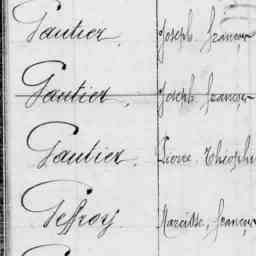 Gautier, Joseph françois
Gautier, Joseph françois
Gautier, Pierre Théophi
Geffroy, Narcisse, françois